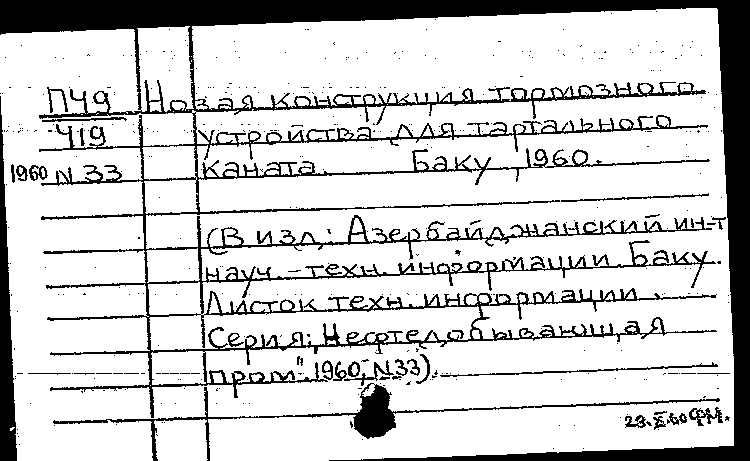 П49 Новая конструкция тормозного
419 устройства для тартального
1960 N 33 каната. Баку, 1960.
(В изд.: Азербайджанский ин-т
науч.-техн. информации. Баку.
Листок техн. информации.
Серия: "Нефтедобывающая
пром". 1960, N33).
23.X.60 ФМ.